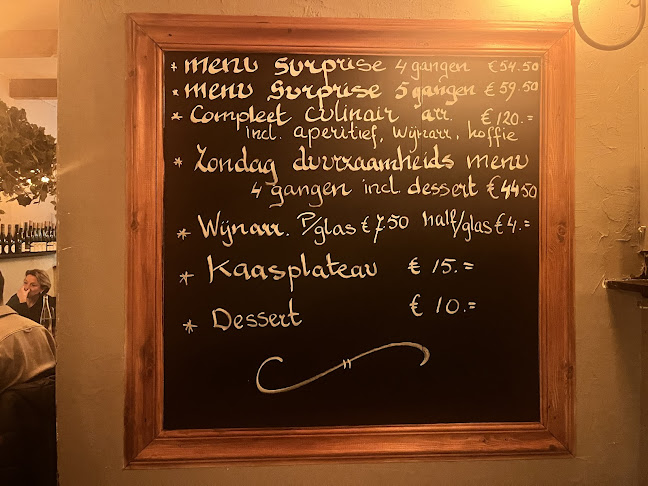 * menu surprise 4 gangen € 54.50
* menu surprise 5 gangen € 59.50
* Compleet culinair arr. € 120.=
incl. aperitief, wijnarr., koffie
* Zondag duurzaamheids menu
4 gangen incl. dessert € 44.50
* Wijnarr. P/glas € 7.50 half/glas € 4.=
* Kaasplateau € 15.=
* Dessert € 10.=